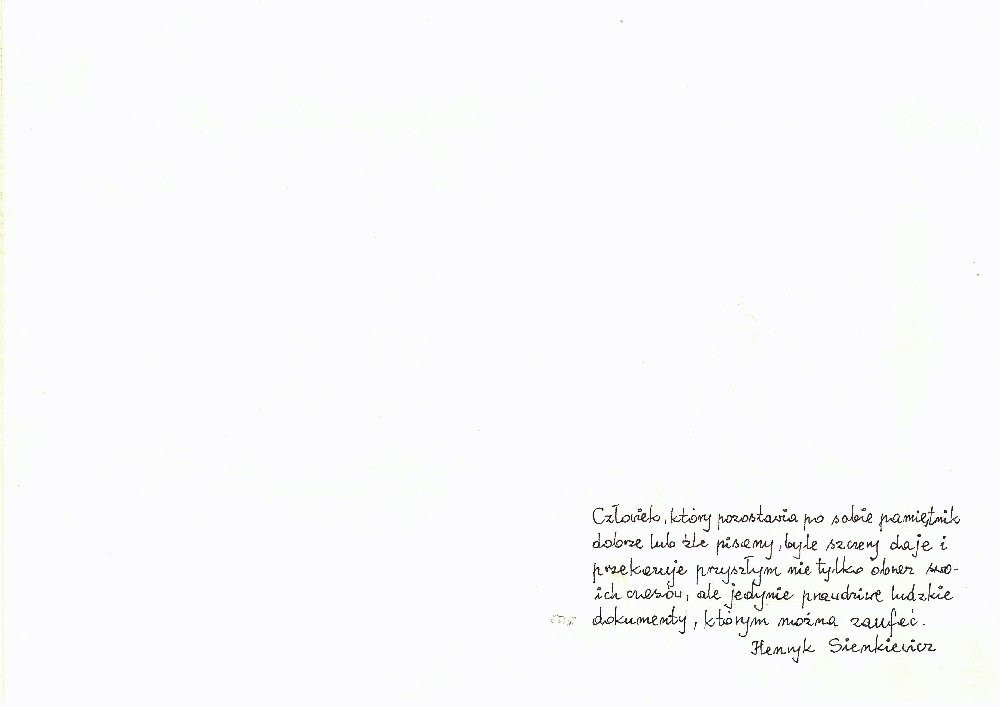 Człowiek, który pozostawia po sobie pamiętnik
dobrze lub źle pisany, byle szczery daje i
przekazuje przyszłym nie tylko obraz swo-
ich czasów, ale jedynie prawdziwe ludzkie
dokumenty, którym można zaufać.
Henryk Sienkiewicz